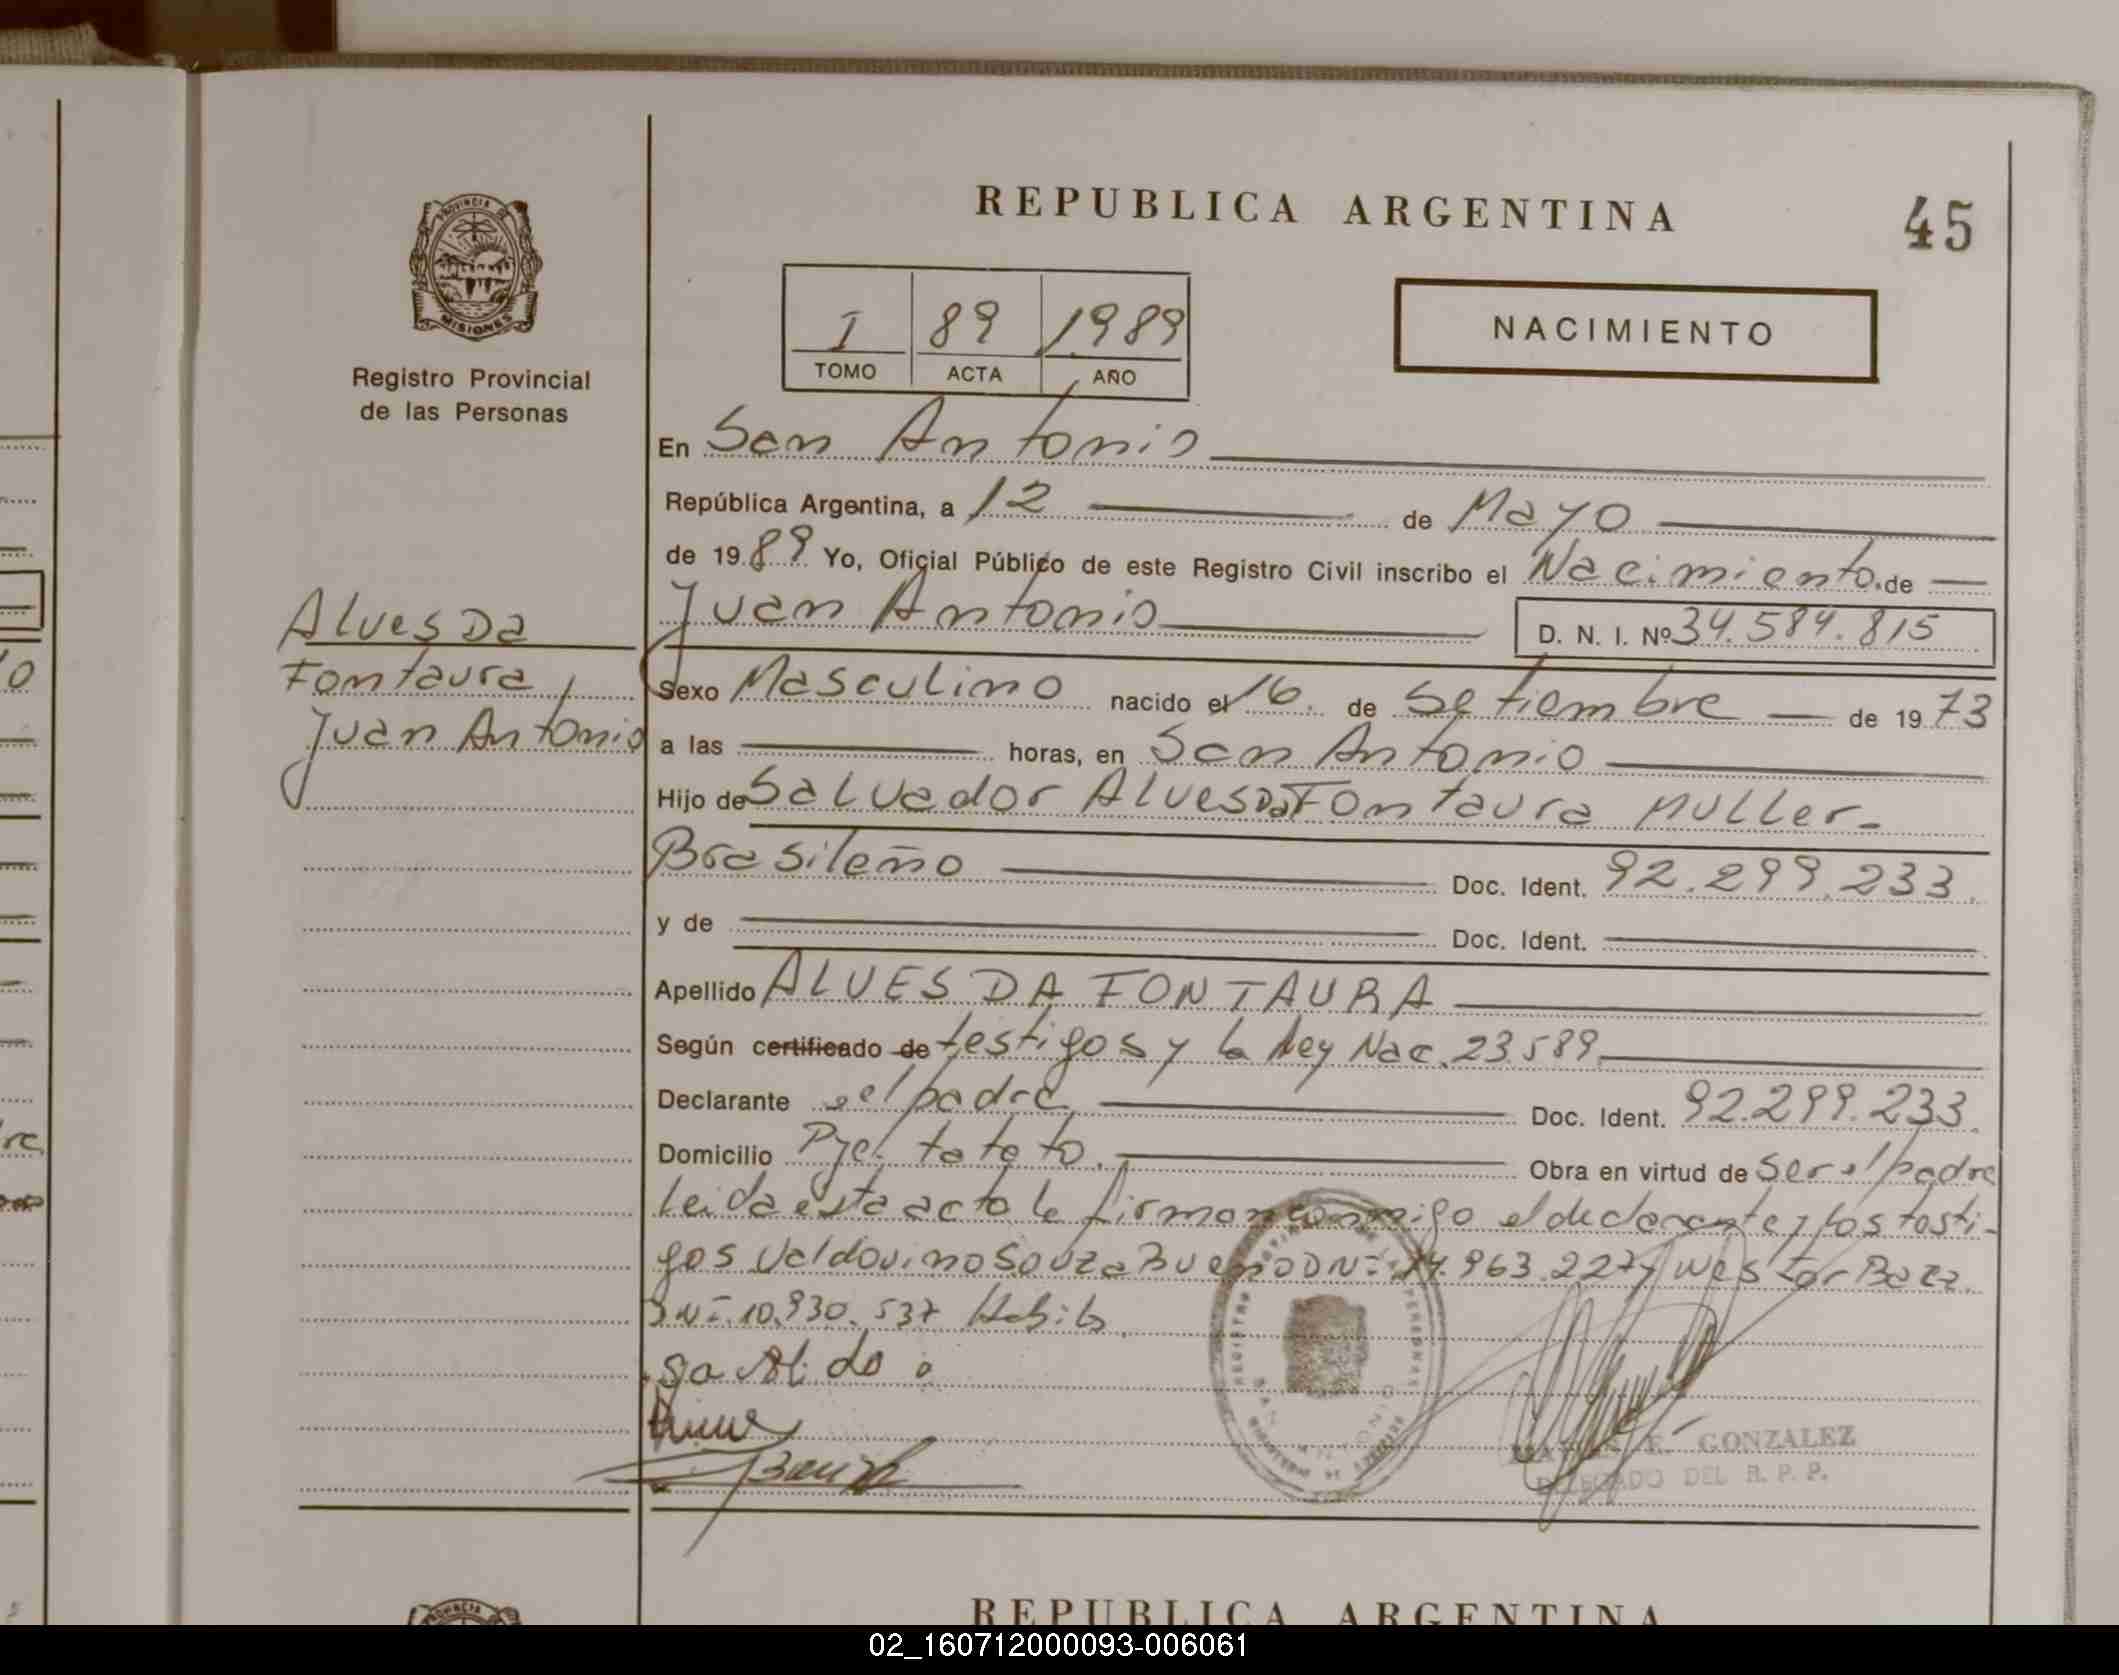 REPUBLICA ARGENTINA
45
PROVINCIA DE
MISIONES
Registro Provincial
de las Personas
I 89 1989
TOMO ACTA AÑO
NACIMIENTO
En San Antonio
República Argentina, a 12 de Mayo
de 19 89 Yo, Oficial Público de este Registro Civil inscribo el Nacimiento de
Juan Antonio D. N. I. Nº 34.584.815
Alves Da
Fontaura,
Juan Antonio
Sexo Masculino nacido el 16 de Setiembre de 19 73
a las horas, en San Antonio
Hijo de Salvador Alves Da Fontaura Muller-
Brasileño Doc. Ident. 92.299.233
y de Doc. Ident.
Apellido ALVES DA FONTAURA
Según certificado de testigos y la Ley Nac. 23.589
Declarante el padre Doc. Ident. 92.299.233
Domicilio Pje. tateto. Obra en virtud de Ser el padre
leida esta acta la firman conmigo el declarante y los testi-
gos Valdovino Souza Bueno DNI 14.963.227 y Nestor Baez
DNI. 10.930.537 Habil
GONZALEZ
DELEGADO DEL R. P. P.
REPUBLICA ARGENTINA
02_160712000093-006061